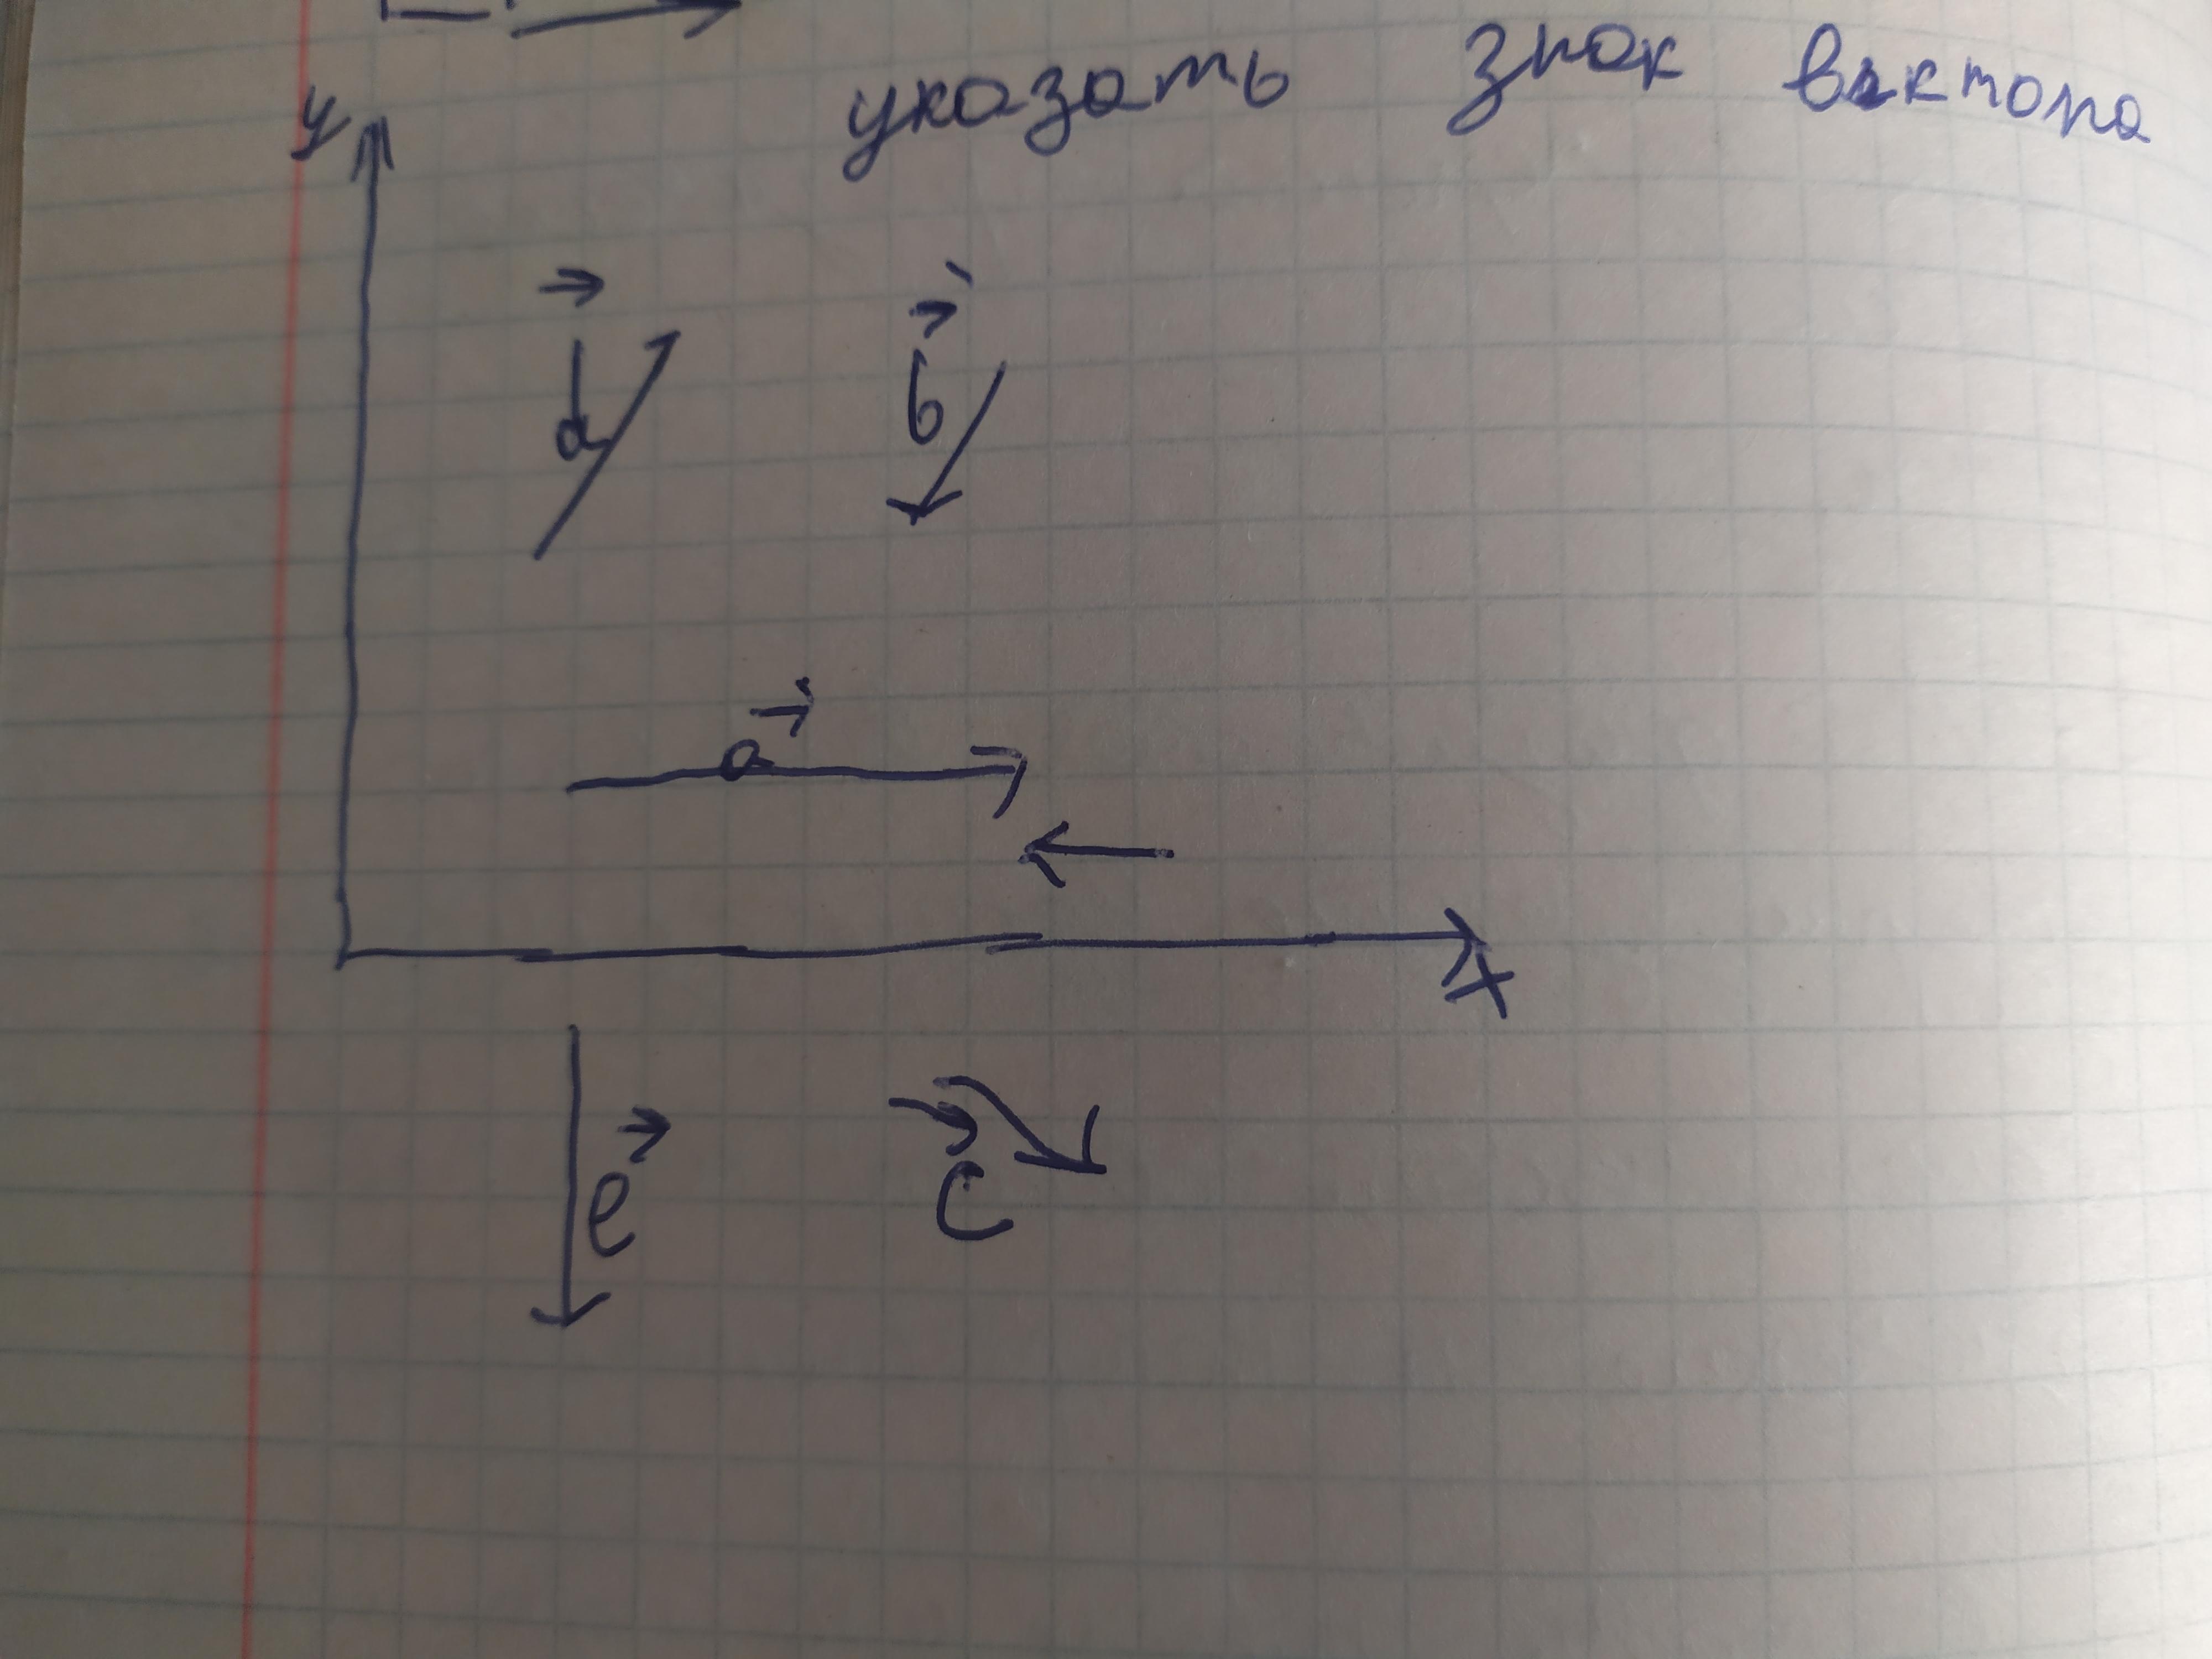 указать знак вектора
y
d
b
a
x
e
c